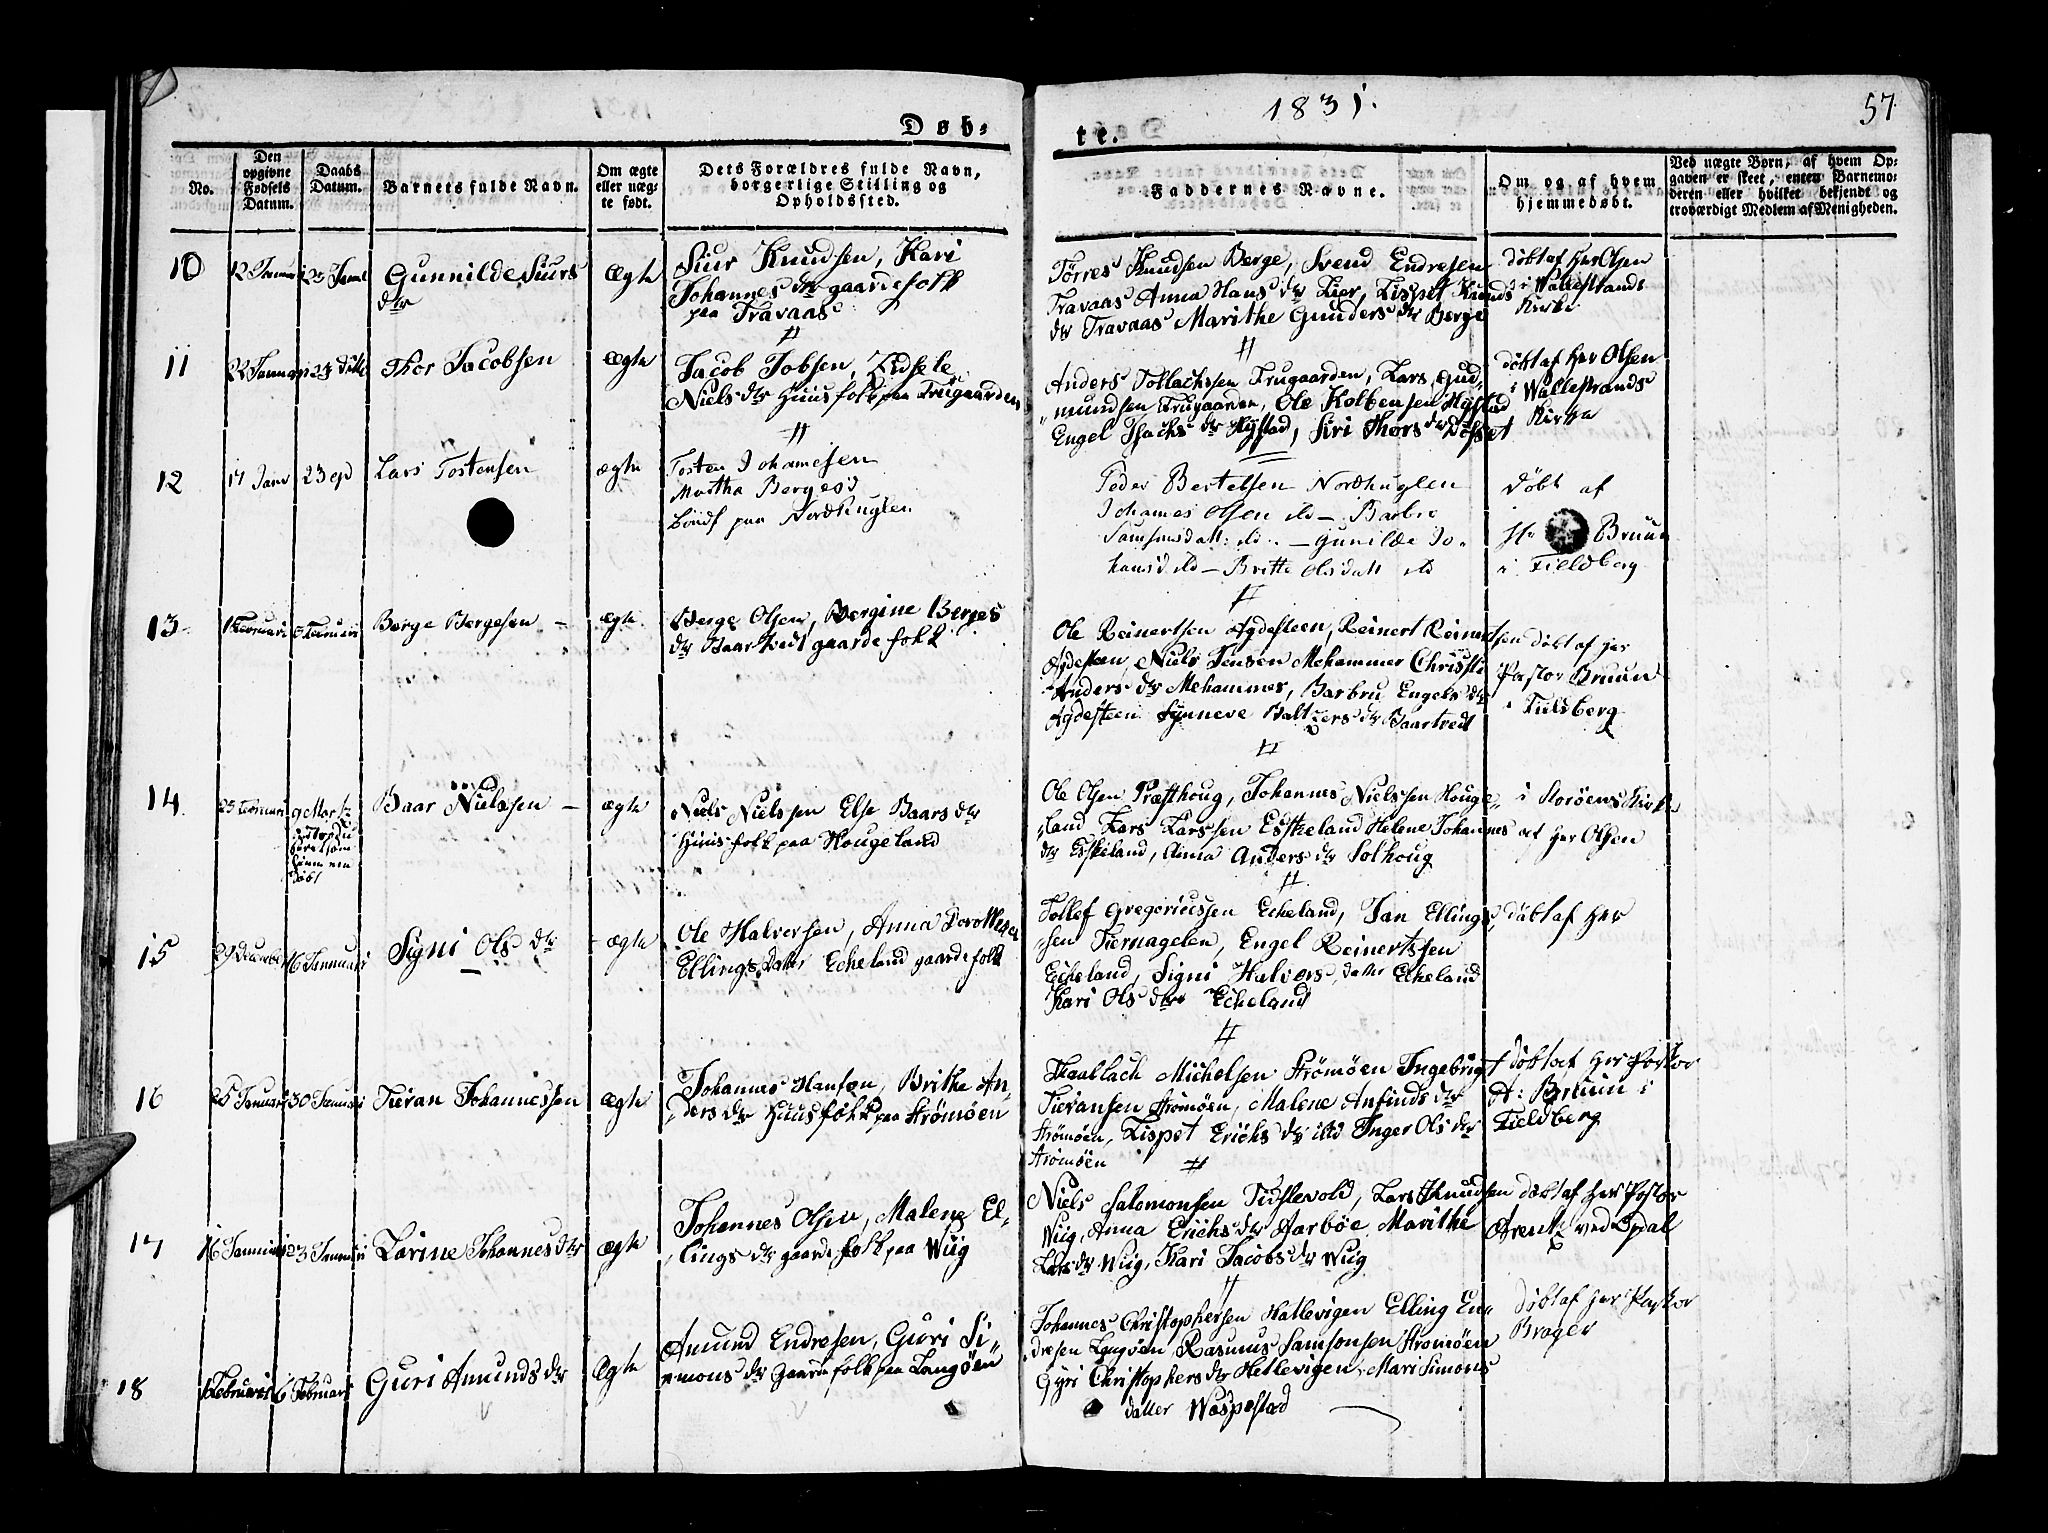 Døb-
te.
1831.
57
No.
Den
opgivne
Fødsels
Datum.
Daabs
Datum.
Barnets fulde Navn.
Om ægte
eller uæg-
te født.
Dets Forældres fulde Navn,
borgerlige Stilling og
Opholdssted.
Faddernes Navne.
Om og af hvem
hjemmedøbt.
Ved uægte Børn, af hvem Op-
gaven er skeet, enten Barnemo-
deren eller hvilket bekjendt og
troværdigt Medlem af Menigheden.
10
Gunnilde Siurs
dtr
Ægte
Siur Knudsen, Kari
Johannes dtr gaardefolk
paa Travaas
Tørres Knudsen Berge, Svend Endresen
Travaas Anna Hans dtr Lier, Lispet Knuds
dtr Travaas Marithe Gunders dtr Berge
døbt af Her Olsen
i Wallestrands
Kirke
11
Thor Jacobsen
Ægte
Jacob Jobsen, Zidsele
Niels dtr Huusfolk paa Frugaarden
Anders Tollachssen Frugaarden, Lars Gud-
mundsen Frugaarden, Ole Kolbensen Hystad
Engel Isachs dtr Hystad, Siri Thors dtr
døbt af Her Olsen
i Wallestrands
Kirke
12
17 Janr
23 ej
Lars Tostensen
ægte
Tosten Johanesen
Martha Bergesd
Bondf paa Nordhuglen
Peder Bertelsen Nordhuglen
Johannes Olsen do - Barbro
Samsonsdatt: do - Gunilde Jo-
hansd do - Britte Olsdatt do
Døbt af
Hr Bruun
i Fieldberg
13
1 Februari
6 Februari
Berge Bergesen -
ægte
Berge Olsen, Bergine Berges
dtr Baartvedt gaardefolk
Ole Reinertsen Agdesteen, Reinert Reinert
sen døbt af Her
Agdesteen, Niels Jensen Mehammer Christi
Pastor Bruun
Anders dtr Mehammer, Barbru Engels dtr
i Fieldberg
Agdesteen Synneve Baltzers dtr Baartvedt
14
25 Februari
9 Marts
Baar Nielssen -
ægte
Niels Nielssen Else Baars dtr
Huusfolk paa Hougeland
Ole Olsen Præsthoug, Johannes Nielssen Houge-
land Lars Larssen Eskeland Helene Johannes
dtr Eskeland, Anna Anders dtr Solhoug
i Storöens Kirke
af Her Olsen
15
29 December
16 Januari
Signi Ols dtr
ægte
Ole Halversen, Anna Dorothea
Ellings datter Eckeland gaardefolk
Tollef Gregoriussen Eckeland, Jan Ellings-
sen Tiernagelen, Engel Reinertssen
Eckeland, Signi Halvors datter Eckeland
Kari Ols dtr Eckeland
døbt af Her
16
25 Januari
30 Januari
Tieran Johannessen
ægte
Johannes Hansen, Brithe An-
ders dtr Huusfolk paa Strömöen
Haallach Michelsen Strömöen Ingebrigt
Tieransen Strömöen, Malene Anfinds dtr
Strömöen, Lispet Erichs dtr ibd Inger Ols dtr
Strömöen
døbt af Her Pastor
A: Bruun i
Fieldberg
17
16 Januari
23 Januari
Larine Johannes dtr
ægte
Johannes Olsen, Malene El-
lings dtr gaardefolk paa Wiig
Niels Salomonsen Tidslevold, Lars Knudsen
Wiig, Anna Erichs dtr Aarböe Marithe
Lars dtr Wiig, Kari Jacobs dtr Wiig
døbt af Her Pastor
Arentz ved Opdal
18
1 Februari
6 Februari
Guri Amunds dtr
Ægte
Amund Endresen, Guri Si-
mons dtr Gaardefolk paa Langöen
Johannes Christophersen Hatlevigen Elling En-
dresen Langöen, Rasmus Samsonsen Strömöen
Gyri Christophers dtr Hetlevigen Mari Simons
datter Waspestad
Döbt af Her Pastor
Brager